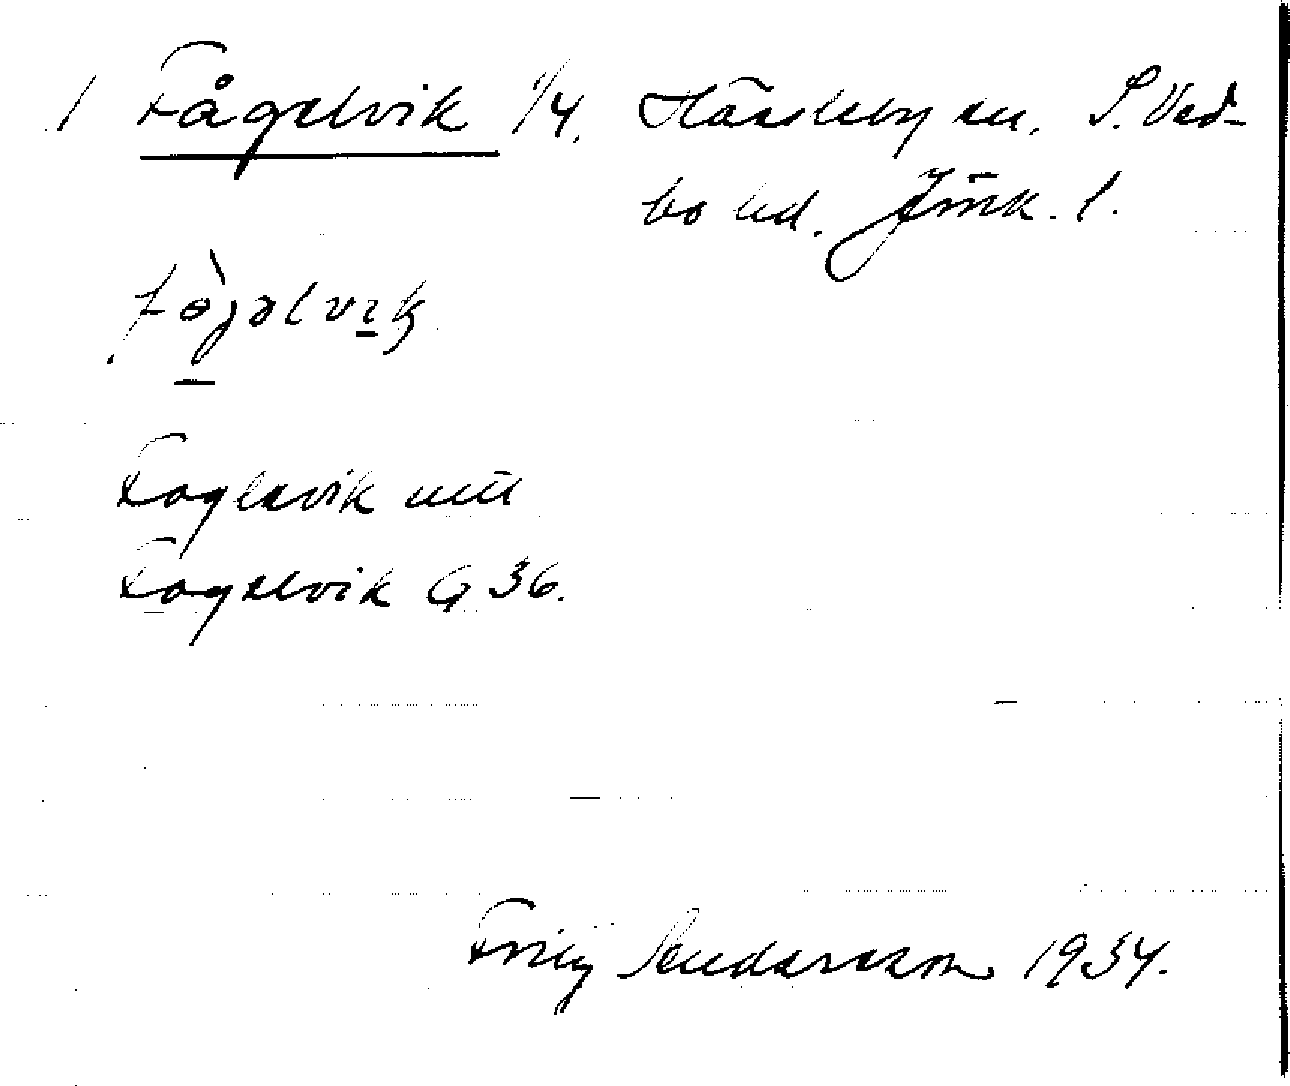 1 Fågelvik 1/4. Hässleby sn. S. Ved-
bo hd. Jönk. l.
Foglavik
Fogelvik G 36.
Fritz Andersson 1934.